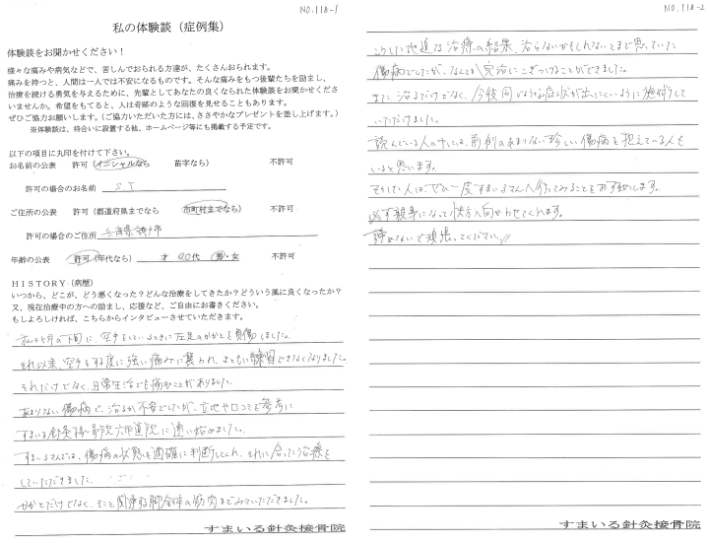 NO.118-1
私の体験談（症例集）
体験談をお聞かせください！
様々な痛みや病気などで、苦しんでおられる方達が、たくさんおられます。
痛みを持つと、人間は一人では不安になるものです。そんな痛みをもつ後輩たちを励まし、
治療を続ける勇気を与えるために、先輩としてあなたの良くなられた体験談をお聞かせくださ
いませんか。希望をもてると、人は奇跡のような回復を見せることもあります。
ぜひご協力お願いします。（ご協力いただいた方には、ささやかなプレゼントを差し上げます。）
※体験談は、待合いに設置する他、ホームページ等にも掲載する予定です。
以下の項目に丸印を付けて下さい。
お名前の公表　許可（イニシャルなら　苗字なら）　不許可
許可の場合のお名前　S T
ご住所の公表　許可（都道府県までなら　市町村までなら）　不許可
許可の場合のご住所　兵庫県神戸市
年齢の公表　許可（年代なら）　才　20代　（男・女　不許可
HISTORY（病歴）
いつから、どこが、どう悪くなった？どんな治療をしてきたか？どういう風に良くなったか？
又、現在治療中の方への励まし、応援など、ご自由にお書きください。
もしよろしければ、こちらからインタビューさせていただきます。
私は5月の下旬に、空手をしているときに左足のかかとを負傷しました。
それ以来、空手をする度に強い痛みに襲われ、まともに練習できなくなりました。
それだけでなく、日常生活でも痛むことがありました。
あまりない傷病で、治るか不安でしたが、立地や口コミを参考に
すまいる針灸接骨院六甲道院に通い始めました。
すまいるさんでは、傷病の状態を適確に判断してくれ、それに合った治療を
していただきました。
かかとだけでなく、そこと関連する脚全体の筋肉までみていただきました。
すまいる針灸接骨院
NO.118-2
こうした地道な治療の結果、治らないかもしれないとまで思っていた
傷病でしたが、なんとか完治にこぎつけることができました。
また、治るだけでなく、今後同じような症状が出にくいように施術して
いただけました。
読んでいる人の中には、前例のあまりない珍しい傷病を抱えている人も
いると思います。
そうした人はぜひ一度すまいるさんへ行ってみることをお勧めします。
必ず親身になって快方へ向かわせてくれます。
諦めないで頑張ってください。
すまいる針灸接骨院